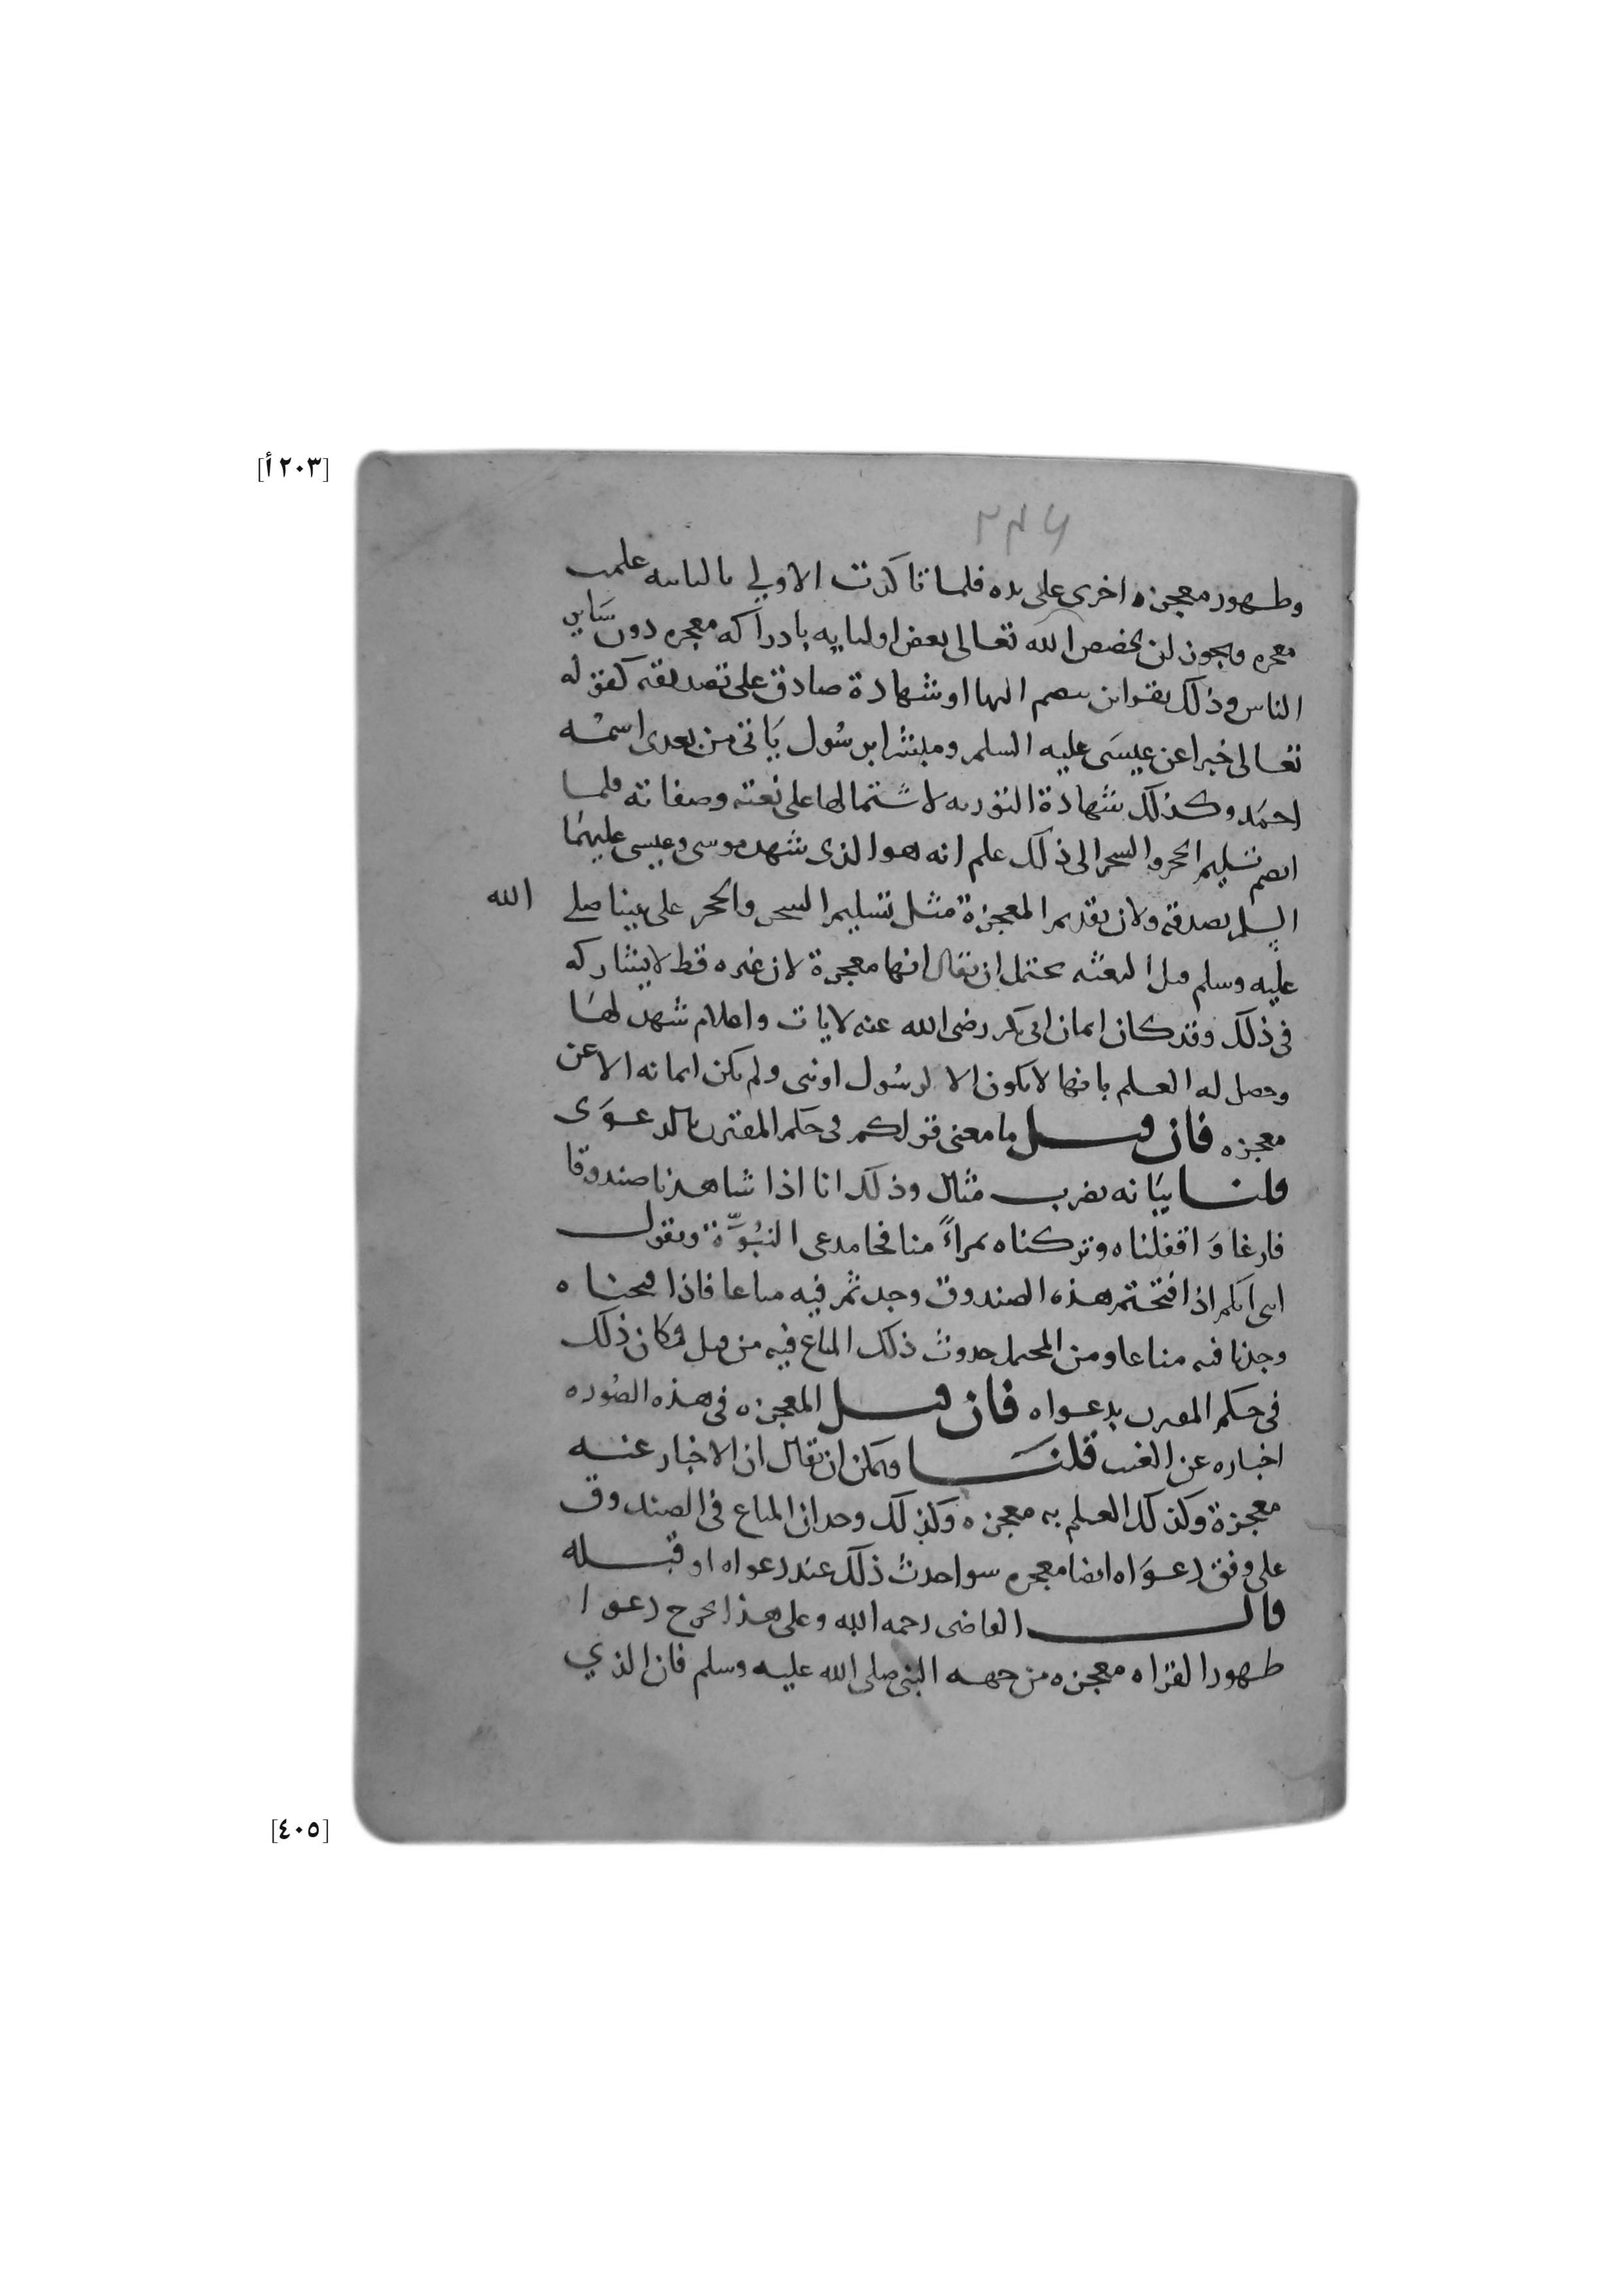 [٢٠٣أ]
٢٣٦
وظهور معجزه اخرى على يده فلما تاكدت الاولي بالثانيه علمت
معجزه ويجوز ان يخصص الله تعالى بعض اوليايه بادراكه معجزه دون ساير
الناس وذلك بقراين ينضم اليها او شهادة صادق على تصديقه كقوله
تعالى خبرا عن عيسَى عليه السلم ومبشرا برسُول يَاتى من بعدى اسمُه
احمَد وكذلك شهادة التوريه لاشتمالها على نعته وصفاته فلما
انضم تسليم الحجر والشجر الى ذلك علم انه هو الذى شهد موسى وعيسى عليهمَا
السلم بصدقه ولان تقديم المعجزة مثل تسليم الشجر والحجر على نبينا صلى الله
عليه وسلم قبل البعثه يحتمل ان يقال انها معجزة لان غيره قط لا يشاركه
فى ذلك وقد كان ايمان ابى بكر رضى الله عنه لايات واعلام شهد لهَا
وحصل له العلم بانها لا يكون الا لرسُول او نبى ولم يكن ايمانه الا عن
معجزه فان قيل ما معنى قولكم فى حكم المقترن بالدعوَى
قلنا بيَانه بضرب مثال وذلك انا اذا شاهدنا صندوقا
فارغا وَاقفلناه وتركناه بمراءً منا فجا مدعى النبُوَّة ويقول
ايتى انكم اذا افتحتم هذه الصندوق وجدتم فيه متاعا فاذا فتحناه
وجدنا فيه متاعا ومن المحتمل حدوث ذلك المتاع فيه من قبل فكان ذلك
فى حكم المقترن بدعواه فان قيل المعجزه فى هذه الصُوره
اخباره عن الغيب قلنَا ويمكن ان يقال ان الاخبار عنه
معجزة وكذلك العلم به معجزه وكذلك وجدان المتاع فى الصندوق
على وفق دعوَاه ايضا معجزه سوا حدث ذلك عند دعواه او قبله
قال القاضى رحمه الله وعلى هذا يخرج دعوا
ظهور القران معجزه من جهه النبى صلى الله عليه وسلم فان الذي
[٤٠٥]